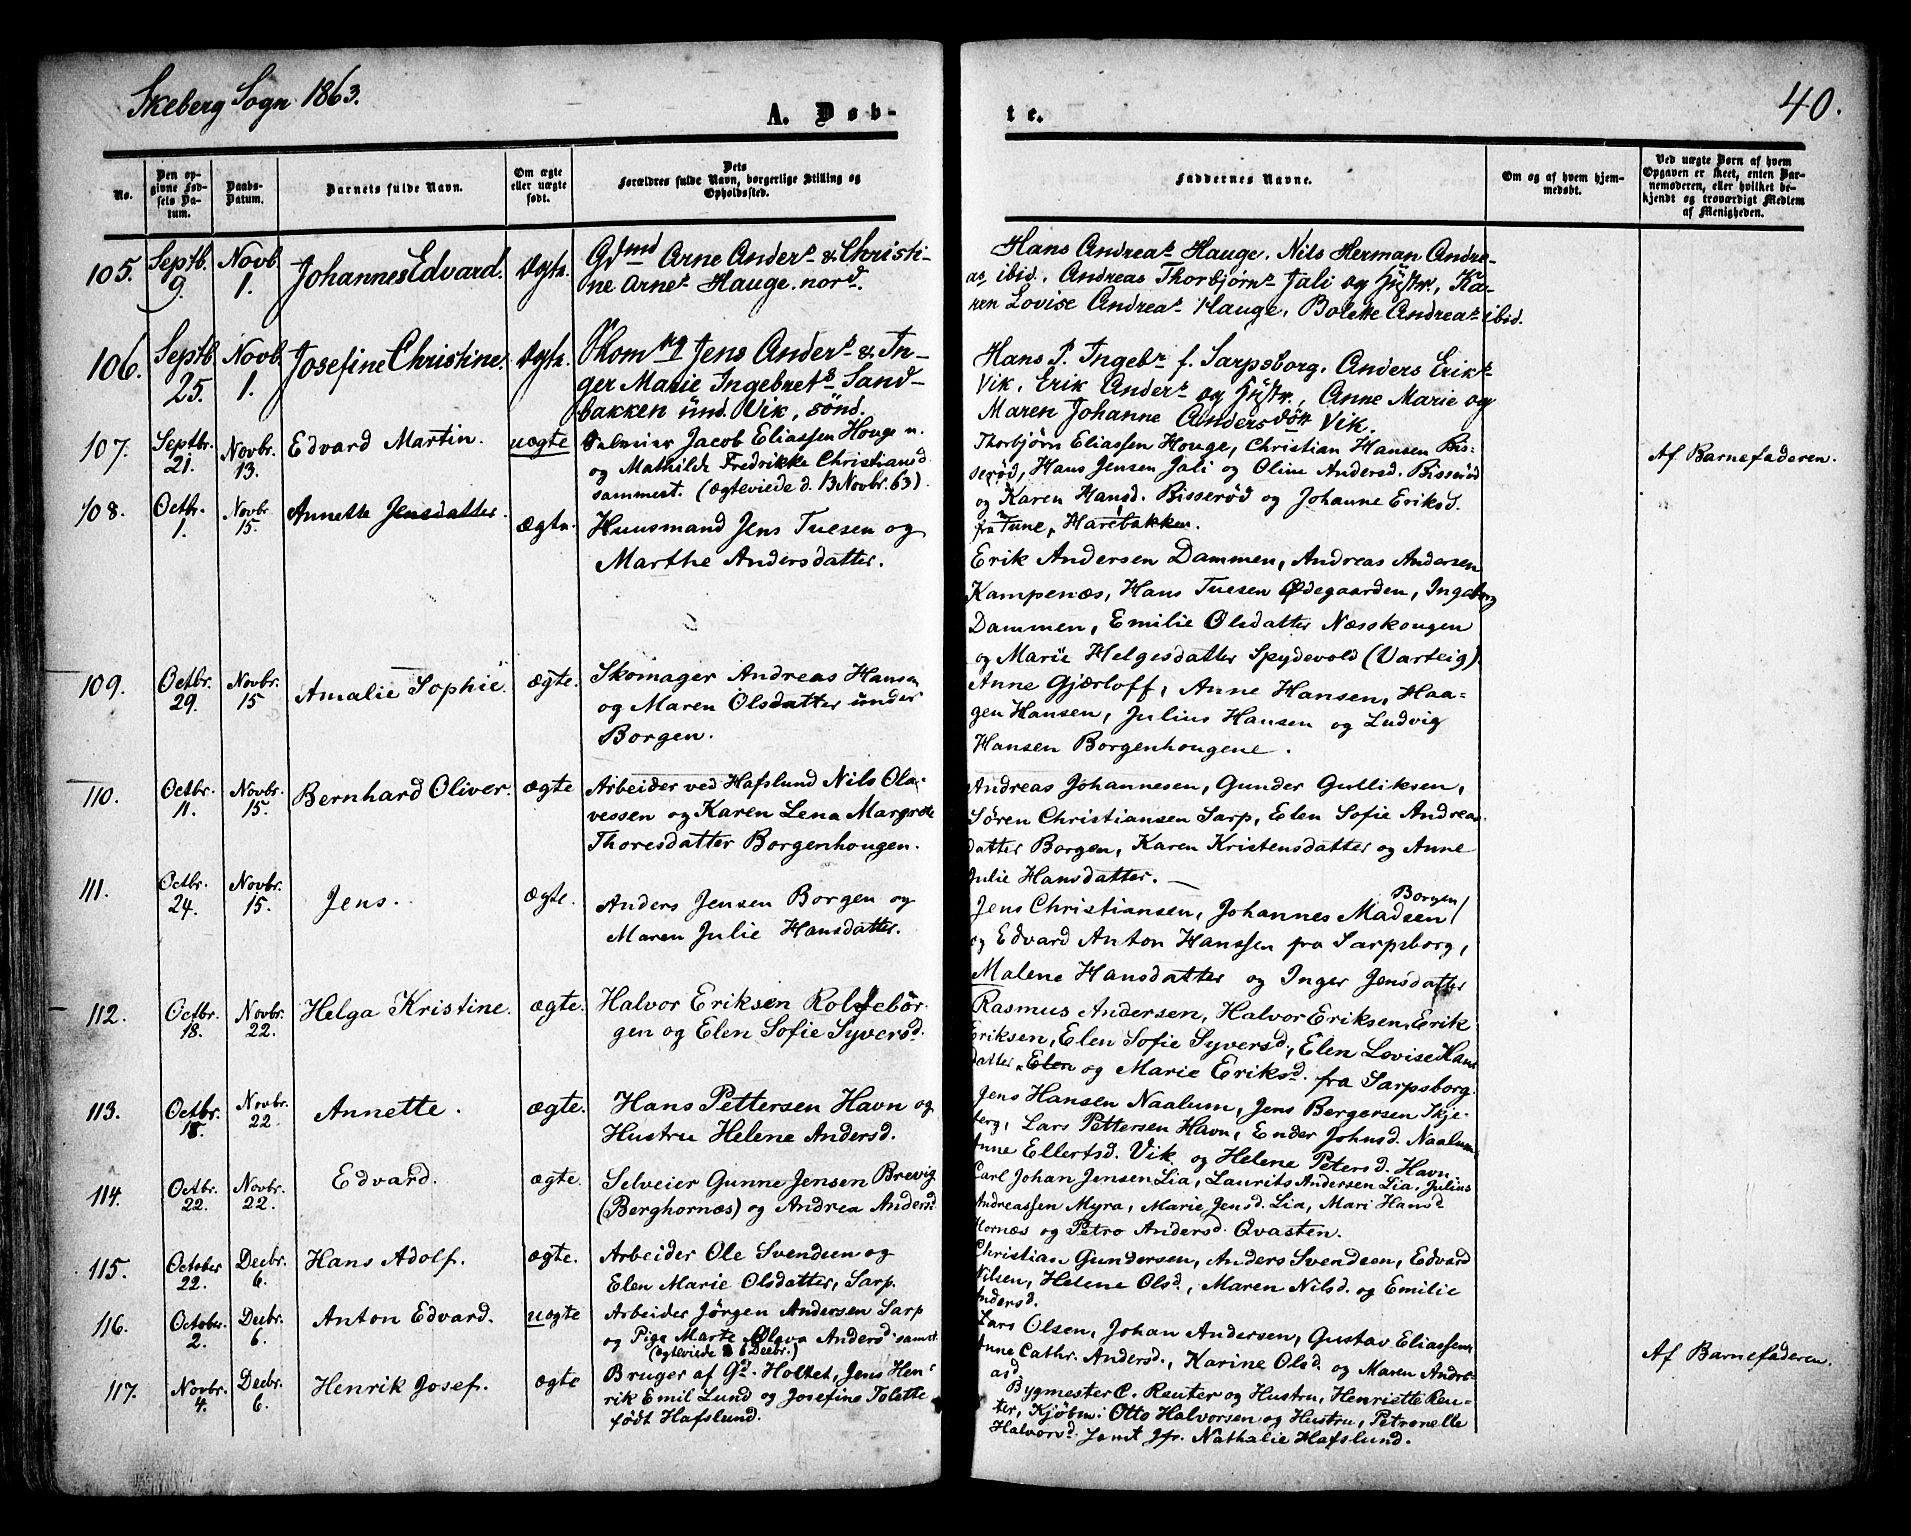 Skeberg Sogn 1863.
40.
A. Døb-
te.
No.
Den op-
givne Fød-
sels Da-
tum.
Daabs-
Datum.
Barnets fulde Navn.
Om ægte
eller uægte
født.
Dets
Forældres fulde Navn, borgerlige Stilling og
Opholdssted.
Faddernes Navne.
Om og af hvem hjem-
medøbt.
Ved uægte Børn af hvem
Opgaven er skeet, enten Bar-
nemoderen, eller hvilket be-
kjendt og troværdigt Medlem
af Menigheden.
105. Septb. 9. Novb. 1. Johannes Edvard. Ægte.
Gdmd Arne Anders & Christi-
ne Arnes Hauge. nord.
Hans Andreas Hauge. Nils Herman Andre-
as ibid. Andreas Thorbjørns Jali og Hustr. Ka-
ren Lovise Andreas Hauge, Bolette Andreas ibid.
106. Septb. 25. Novb. 1. Josefine Christine. Ægte.
Jens Anders & In-
ger Marie Ingebrets Sand-
bakken und. Vik, sönd.
Hans P. Ingebr f. Sarpsborg. Anders Eriks
Vik, Erik Anders og Hustr., Anne Marie og
Maren Johanne Andersdötr Vik.
107. Septbr. 21. Novbr. 13. Edvard Martin. uægte
Jacob Eliassen Houge n.
og Mathilde Fredrikke Christiansd
sammest. (ægteviede d. 13 Novbr. 63).
Thorbjörn Eliassen Houge, Christian Hansen Bis-
serød, Hans Jensen Jali og Oline Andersd. Bisserød
og Karen Hansd. Bisserød og Johanne Eriksd.
fra Tune, Harebakken.
Af Barnefaderen.
108. Octbr. 1. Novbr. 15. Annette Jensdatter. ægte.
Huusmand Jens Tuesen og
Marthe Andersdatter.
Erik Andersen Dammen, Andreas Andersen
Kampenæs, Hans Tuesen Ødegaarden, Ingeborg
Dammen, Emilie Olsdatter Næsskougen
og Marie Helgesdatter Spydevold (Varteig).
109. Octbr. 29. Novbr. 15 Amalie Sophie. ægte.
Skomager Andreas Hansen
og Maren Olsdatter under
Borgen.
Anne Gjærloff, Anne Hansen, Haa-
gen Hansen, Julius Hansen og Ludvig
Hansen Borgenhougene.
110. Octbr. 11. Novbr. 15. Bernhard Oliver. ægte
Arbeider ved Hafslund Nils Ola-
vessen og Karen Lena Margrete
Thoresdatter Borgenhougen.
Andreas Johannesen, Gunder Gulliksen,
Søren Christiansen Sarp, Elen Sofie Andreas
datter Borgen, Karen Kristensdatter og Anne
Julie Hansdatter.
111. Octbr. 24. Novbr. 15. Jens. ægte.
Anders Jensen Borgen og
Maren Julie Hansdatter.
Borgen
Jens Christiansen, Johannes Madsen
og Edvard Anton Hanssen fra Sarpsborg,
Malene Hansdatter og Inger Jensdatter
112. Octbr. 18. Novbr. 22. Helga Kristine. ægte.
Halvor Eriksen Rolfsebör-
gen og Elen Sofie Syversd.
Rasmus Andersen, Halvor Eriksen, Erik
Eriksen, Elen Sofie Syversd., Elen Lovise Hans
datter, Elen og Marie Eriksd. fra Sarpsborg.
113. Octbr. 18. Novbr. 22. Annette. ægte.
Hans Pettersen Havn og
Hustru Helene Andersd.
Jens Hansen Naalum, Jens Bergersen Skje-
berg, Lars Pettersen Havn, Ender Johnsd. Naalum
Anne Ellertsd. Vik og Helene Petersd. Havn
114. Octbr. 22. Novbr. 22. Edvard. ægte.
Selveier Gunne Jensen Brevig
(Berghornæs) og Andrea Andersd
Carl Johan Jensen Lia, Laurits Andersen Lia, Julius
Andreassen Myra, Marie Jensd. Lia, Mari Hansd
Hornæs og Petro Andersd. Qvasten.
115. October 22. Decbr. 6. Hans Adolf. ægte.
Arbeider Ole Svendsen og
Elen Marie Olsdatter, Sarp.
Christian Gundersen, Anders Svendsen, Edvard
Nilsen, Helene Olsd., Maren Nilsd. og Emilie
Andersd.
116. October. 2. Decbr. 6. Anton Edvard. uægte
Arbeider Jörgen Andersen Sarp
og Pige Marte Olava Andersd. samst
(ægteviede 6 Decbr.)
Lars Olsen, Johan Andersen, Gustav Eliassen,
Anne Cathr. Andersd., Karine Olsd. og Maren Andre-
asd.
Af Barnefaderen.
117. Novbr. 4. Decbr. 6. Henrik Josef. ægte
Bruger af Gd. Holtet, Jens Hen-
rik Emil Lund og Josefine Tolette
født Hafslund.
Bygmester C. Reuter og Hustru, Henriette Reu-
ter, Kjøbm: Otto Halvorsen og Hustru, Petronelle
Halvorsd. samt Jfr. Nathalie Hafslund.